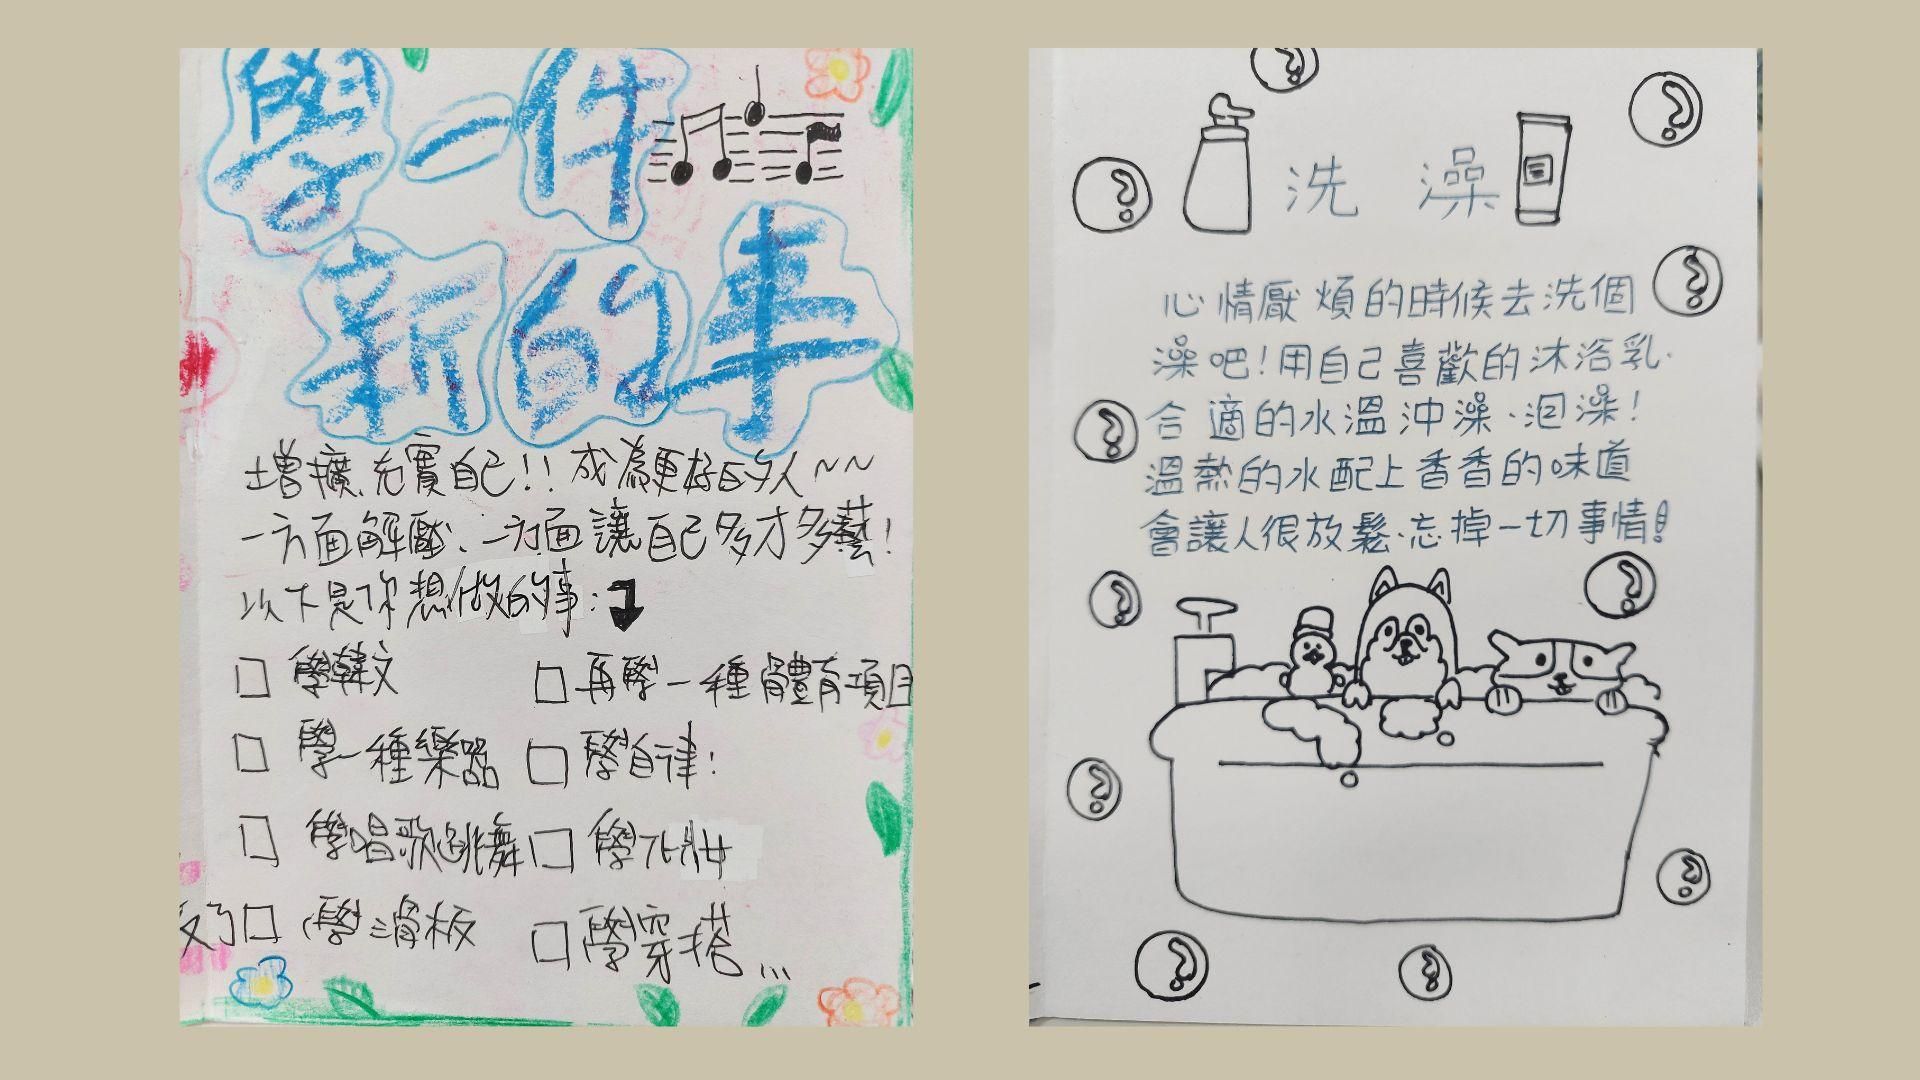 學一件
新的事
增擴、充實自己!! 成為更好的人~~
一方面解壓、一方面讓自己多才多藝!
以下是你想做的事:
學韓文
再學一種體育項目
學一種樂器
學自律!
學唱歌跳舞
學化妝
學滑板
學穿搭...
洗澡
心情厭煩的時候去洗個
澡吧!用自己喜歡的沐浴乳、
合適的水溫沖澡、泡澡!
溫熱的水配上香香的味道
會讓人很放鬆、忘掉一切事情!